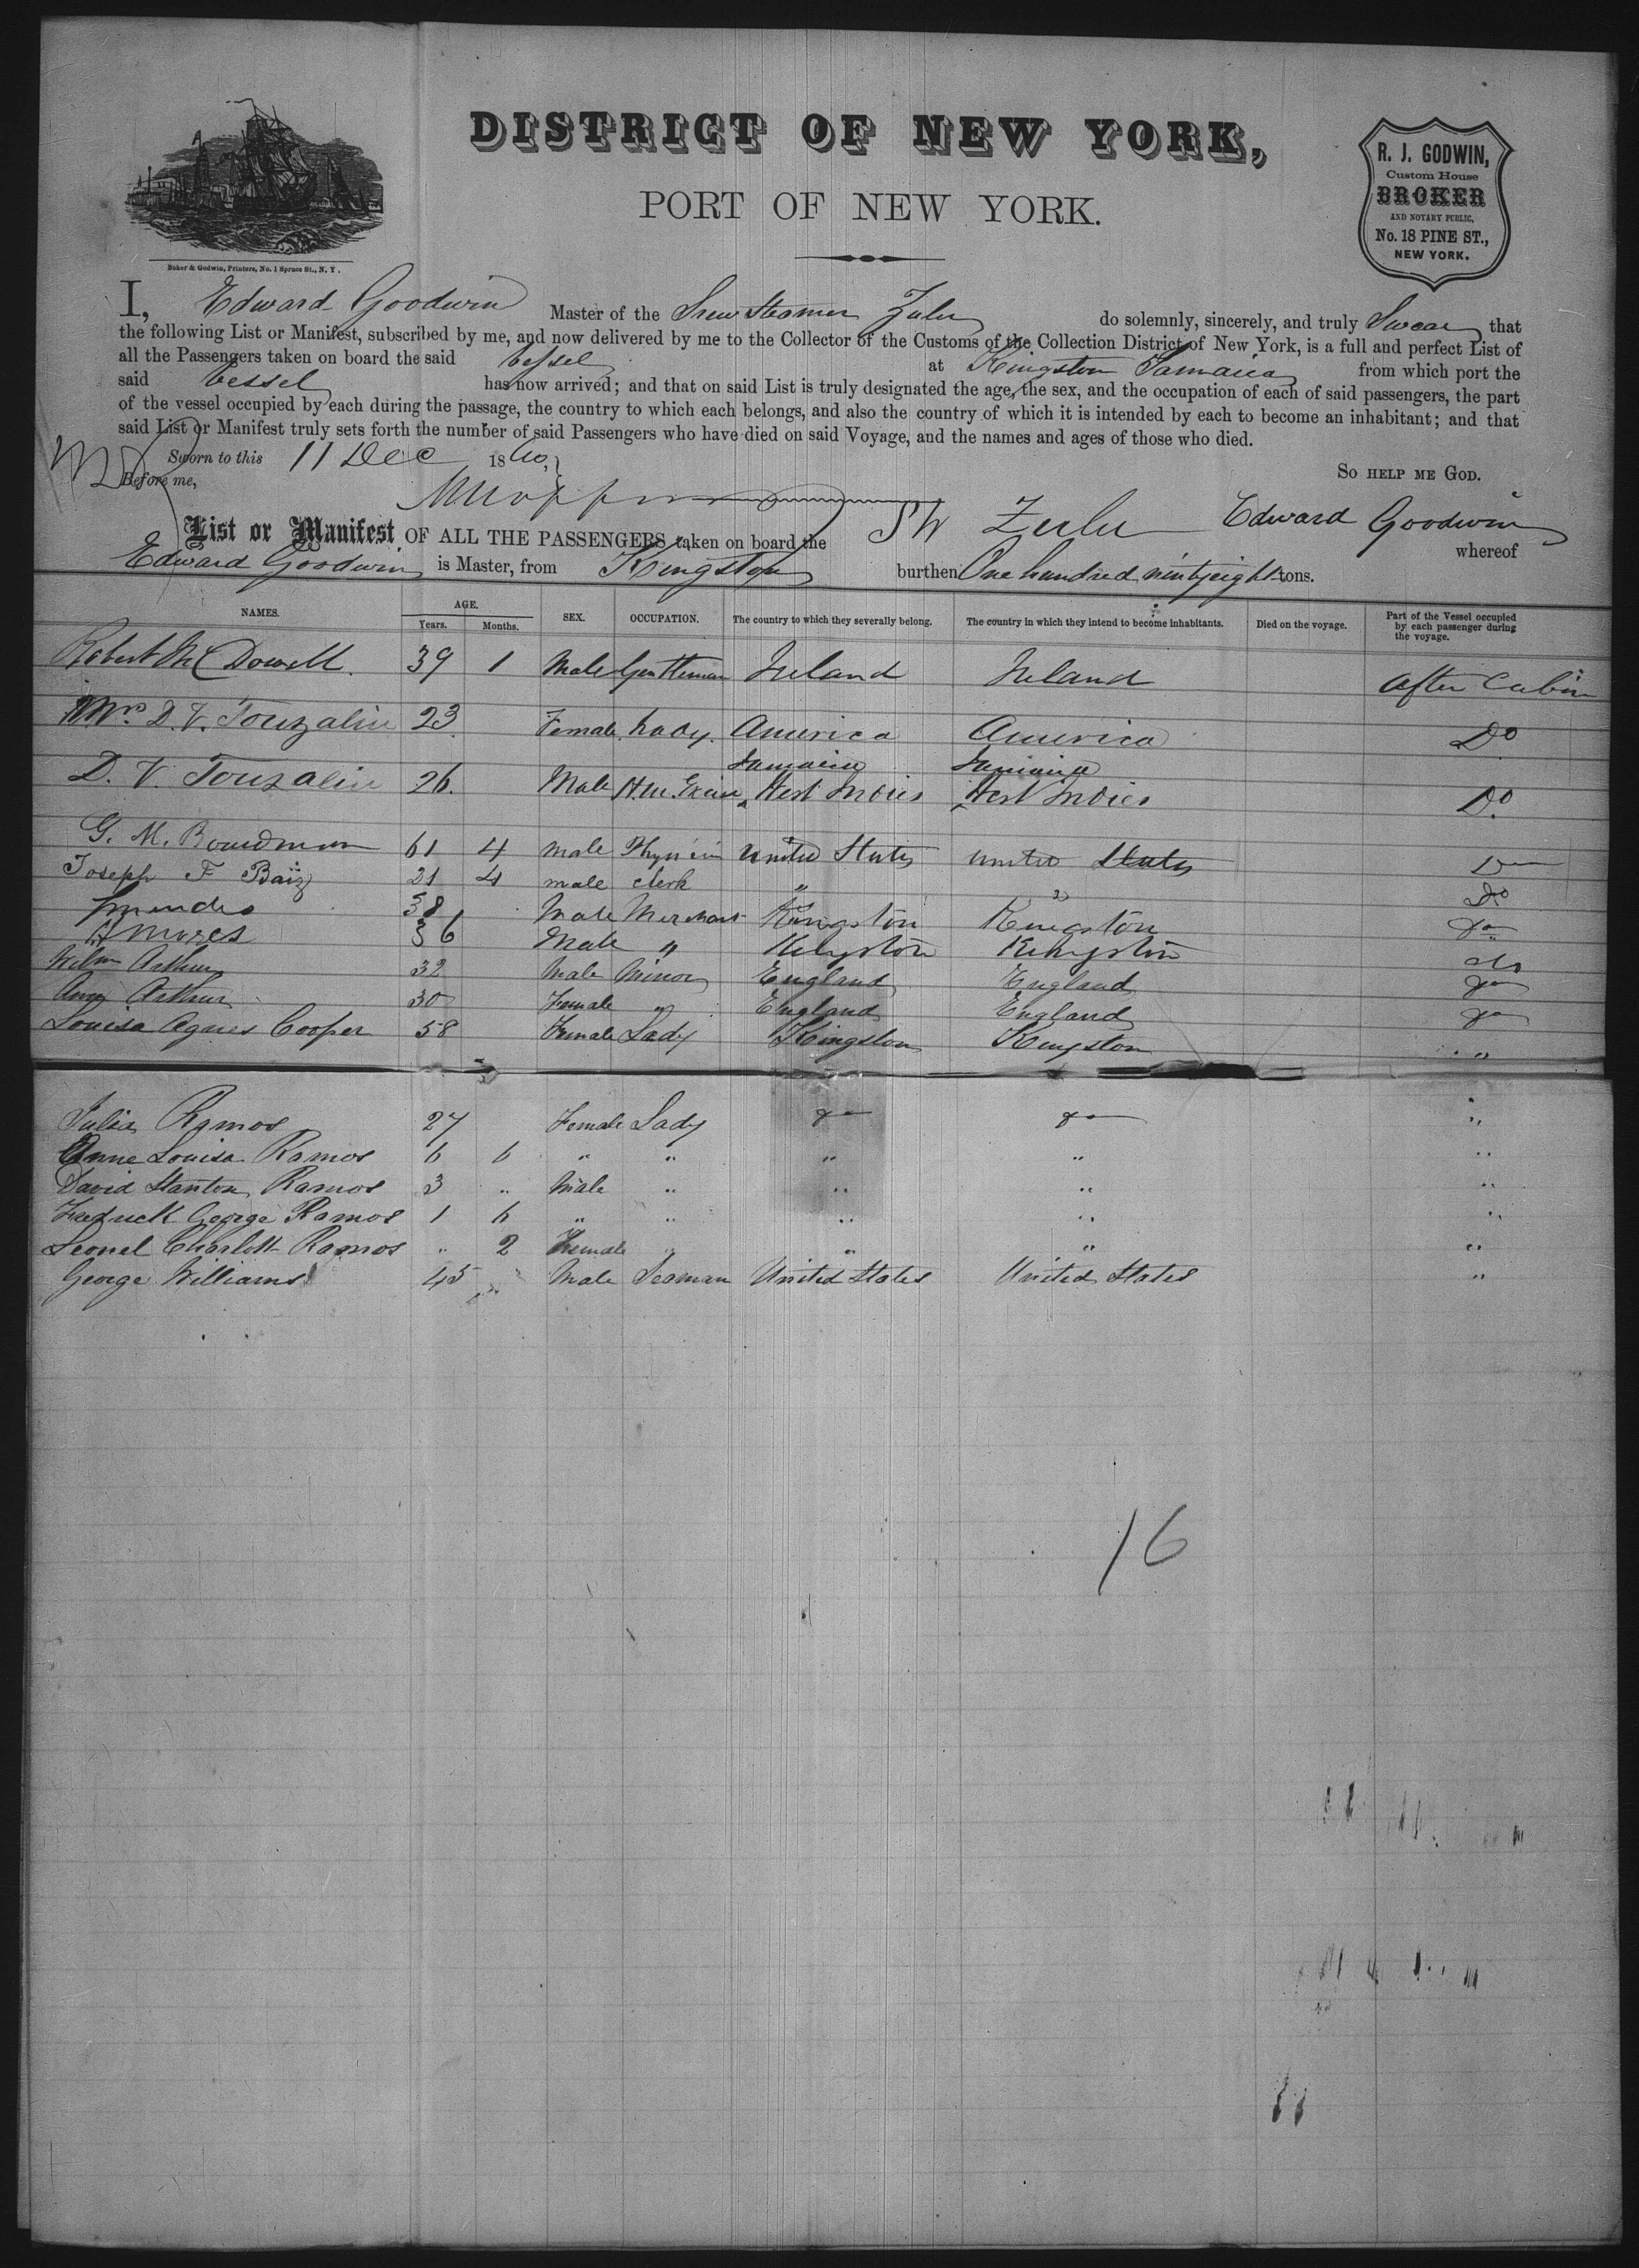 DISTRICT OF NEW YORK,
PORT OF NEW YORK.
R. J. GODWIN,
Custom House
BROKER
AND NOTARY PUBLIC,
No. 18 PINE ST.,
NEW YORK.
Baker & Godwin, Printers, No. 1 Spruce St., N. Y.
I, Edward Goodwin Master of the Screw Steamer Zulu do solemnly, sincerely, and truly Swear that
the following List or Manifest, subscribed by me, and now delivered by me to the Collector of the Customs of the Collection District of New York, is a full and perfect List of
all the Passengers taken on board the said vessel at Kingston Jamaica from which port the
said vessel has now arrived; and that on said List is truly designated the age, the sex, and the occupation of each of said passengers, the part
of the vessel occupied by each during the passage, the country to which each belongs, and also the country of which it is intended by each to become an inhabitant; and that
said List or Manifest truly sets forth the number of said Passengers who have died on said Voyage, and the names and ages of those who died.
Sworn to this 11 Dec 1860, So help me God.
Before me,
Edward Goodwin
List or Manifest OF ALL THE PASSENGERS taken on board the Zulu whereof
Edward Goodwin is Master, from Kingston burthen One hundred ninty eight tons.
NAMES. AGE. Years. Months. SEX. OCCUPATION. The country to which they severally belong. The country in which they intend to become inhabitants. Died on the voyage. Part of the Vessel occupied by each passenger during the voyage.
Robert McDowell. 39 1 Male Gentleman Ireland Ireland After Cabin
Mrs D. V. Touzalin 23. Female Lady. America America Do
Jamaica Jamaica
D. V. Touzalin 26. Male West Indies West Indies Do.
G. M. 61 4 male United States United States Do
Joseph F Baiz 21 4 male clerk " " Do
Mendes 38 Male Merchant Kingston Kingston do
36 Male " Kingston Kingston do
Wilm Arthur 32 Male Minor England England do
Amy Arthur 30 Female " England England do
Louisa Agnes Cooper 58 Female Lady Kingston Kingston "
Julia Ramos 27 Female Lady do do "
Anne Louisa Ramos 6 6 " " " " "
David Stanton Ramos 3 " Male " " " "
Fredrick George Ramos 1 6 " " " " "
Leonel Charlott Ramos " 2 Female " " " "
George Williams 45 " Male Seaman United States United States "
16